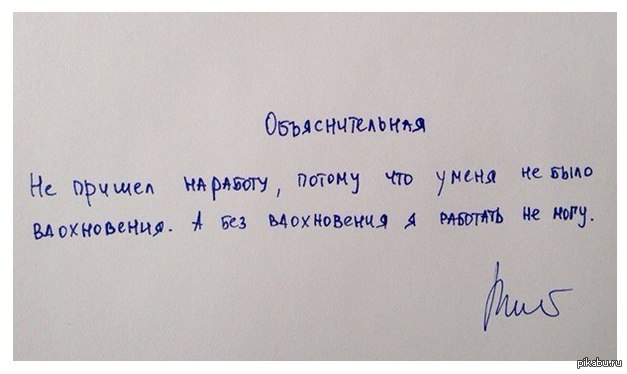 Объяснительная
Не пришел на работу, потому что у меня не было
вдохновения. А без вдохновения я работать не могу.
pikabu.ru